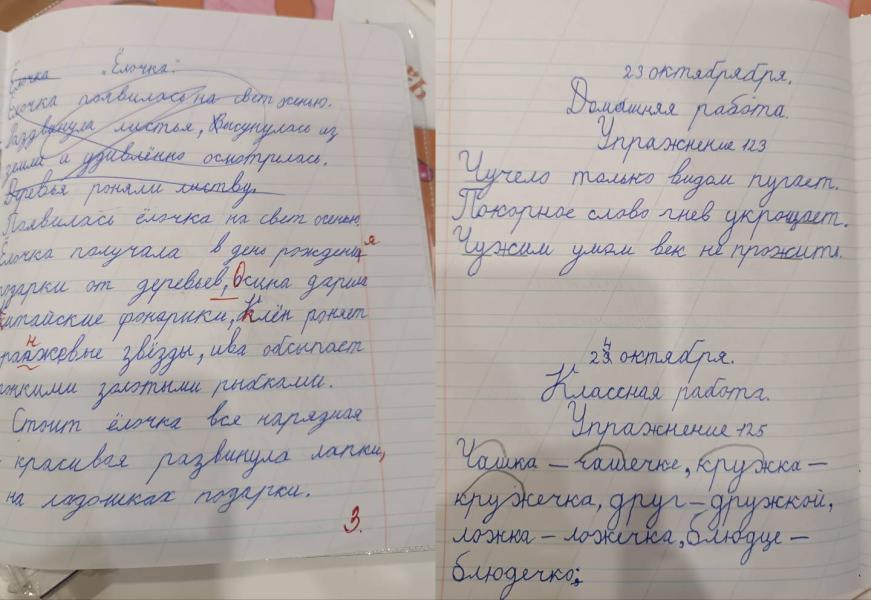 Ёлочка „Ёлочка".
Ёлочка появилась на свет осенью.
Раздвинула листья, высунулась из
земли и удивлённо осмотрелась.
Деревья роняли листву.
Появилась ёлочка на свет осенью
Ёлочка получала в день рождения
подарки от деревьев, Осина дарила
китайские фонарики, Клён роняет
оранжевые звёзды, ива обсыпает
золотыми рыбками.
Стоит ёлочка вся нарядная
красивая развинула лапки,
на ладошках подарки.
3.
23 октябрября.
Домашняя работа.
Упражнение 123
Чучело только видом пугает.
Покорное слово гнев укрощает.
Чужим умом век не прожить.
24 октября.
Классная работа.
Упражнение 125
Чашка – чашечке, кружка –
кружечка, друг – дружкой,
ложка – ложечка, блюдце –
блюдечко;